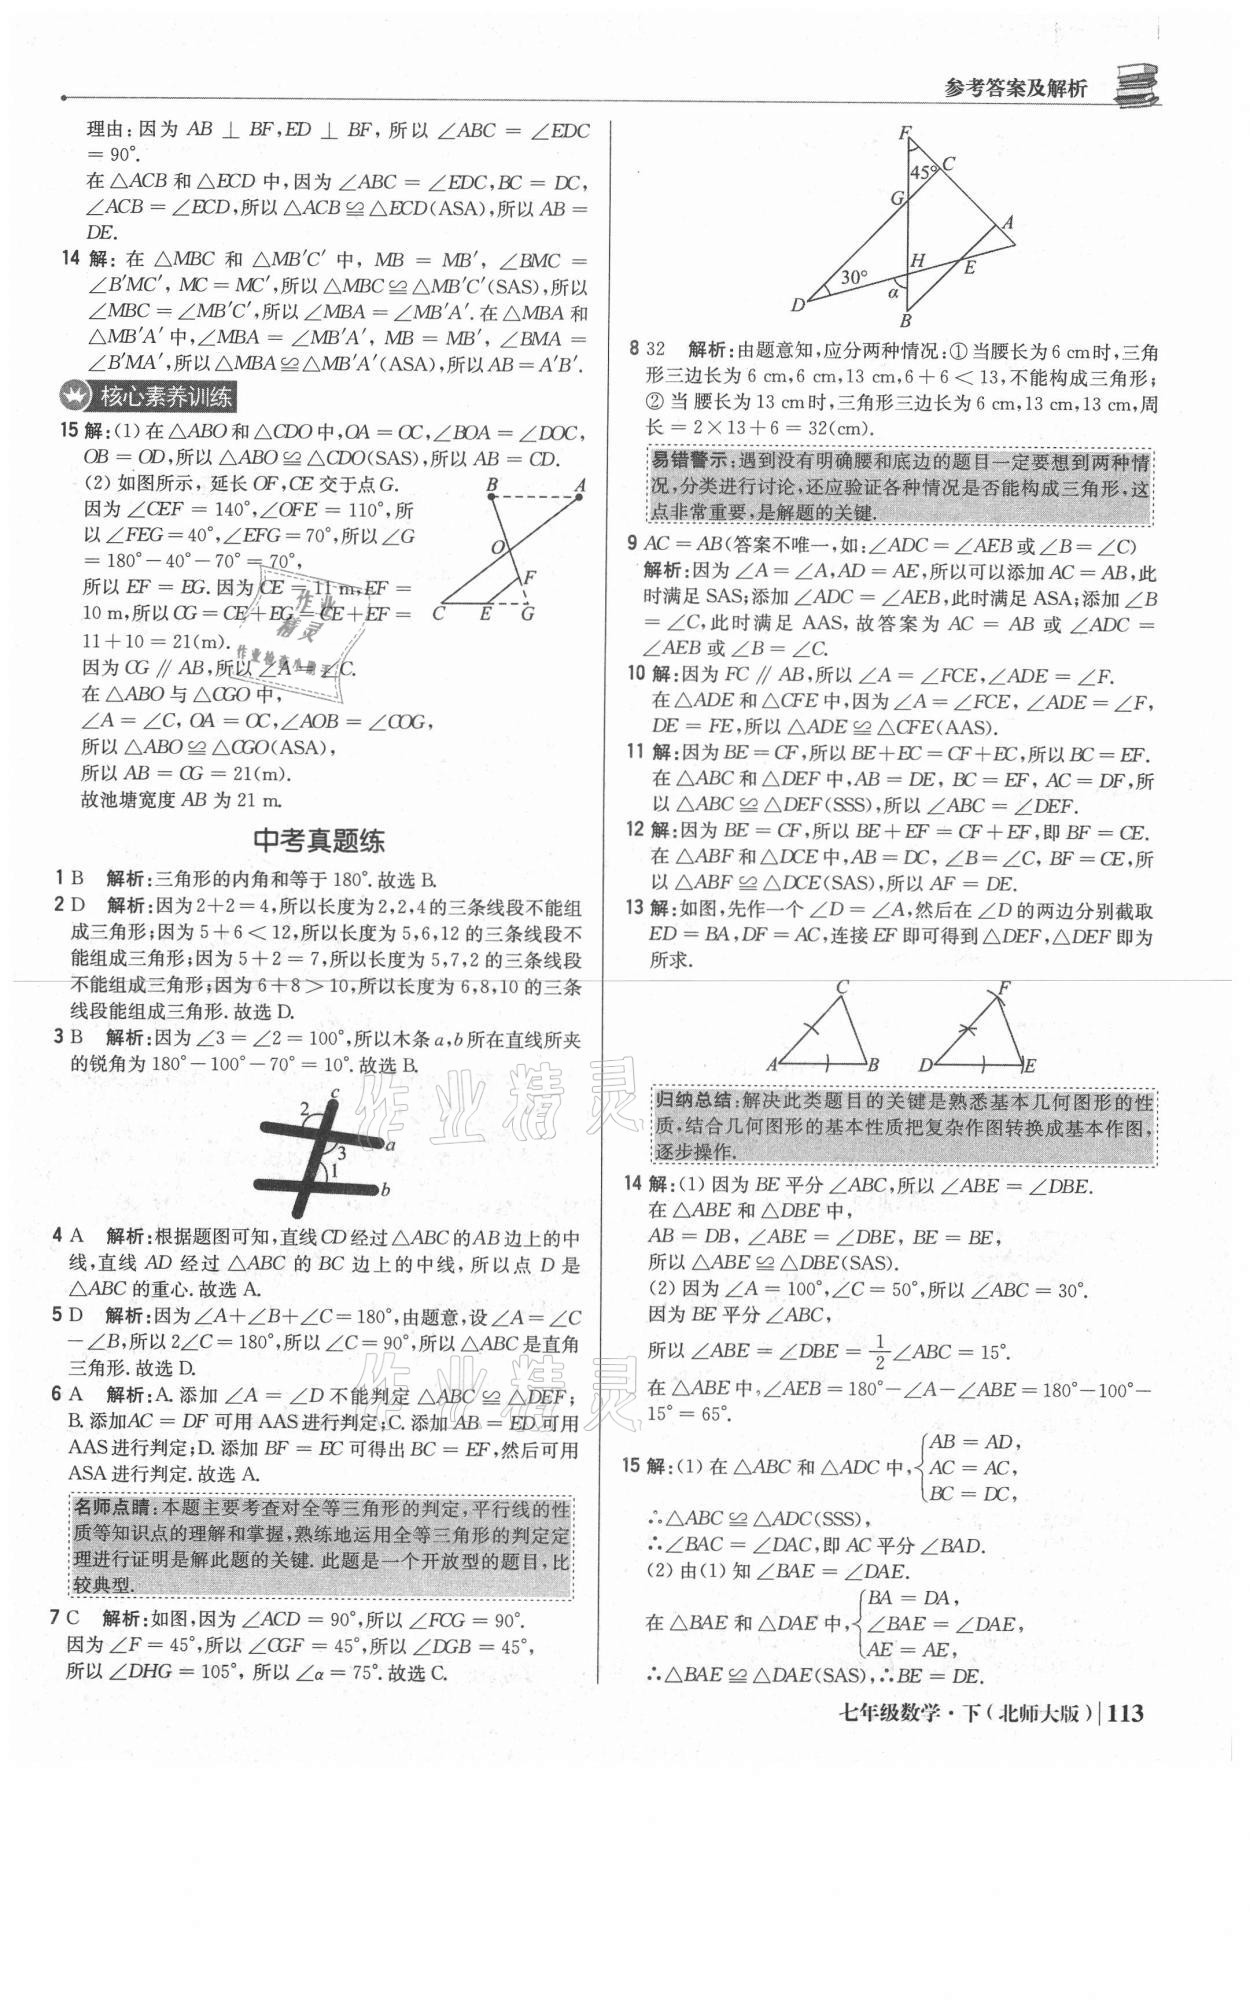 参考答案及解析
理由:因为 AB ⊥ BF,ED ⊥ BF, 所以 ∠ABC = ∠EDC
= 90°.
在 △ACB 和 △ECD 中,因为 ∠ABC = ∠EDC,BC = DC,
∠ACB = ∠ECD,所以 △ACB ≌ △ECD(ASA),所以 AB =
DE.
14 解: 在 △MBC 和 △MB′C′ 中, MB = MB′, ∠BMC =
∠B′MC′, MC = MC′,所以 △MBC ≌ △MB′C′(SAS),所以
∠MBC = ∠MB′C′,所以 ∠MBA = ∠MB′A′.在 △MBA 和
△MB′A′ 中,∠MBA = ∠MB′A′, MB = MB′, ∠BMA =
∠B′MA′,所以 △MBA ≌ △MB′A′(ASA),所以 AB = A′B′.
核心素养训练
15 解:(1) 在 △ABO 和 △CDO 中,OA = OC,∠BOA = ∠DOC,
OB = OD,所以 △ABO ≌ △CDO(SAS),所以 AB = CD.
(2) 如图所示, 延长 OF,CE 交于点 G.
因为 ∠CEF = 140°,∠OFE = 110°,所
以 ∠FEG = 40°,∠EFG = 70°,所以 ∠G
= 180° − 40° − 70° = 70°,
所以 EF = EG. 因为 CE = 11 m,EF =
10 m,所以 CG = CE + EG = CE + EF =
11 + 10 = 21(m).
因为 CG ∥ AB,所以 ∠A = ∠C.
在 △ABO 与 △CGO 中,
∠A = ∠C, OA = OC,∠AOB = ∠COG,
所以 △ABO ≌ △CGO(ASA),
所以 AB = CG = 21(m).
故池塘宽度 AB 为 21 m.
B A
O
F
C E G
中考真题练
1 B 解析:三角形的内角和等于 180°. 故选 B.
2 D 解析:因为 2+2=4,所以长度为 2,2,4 的三条线段不能组
成三角形;因为 5 + 6 < 12,所以长度为 5,6,12 的三条线段不
能组成三角形;因为 5 + 2 = 7,所以长度为 5,7,2 的三条线段
不能组成三角形;因为 6 + 8 > 10,所以长度为 6,8,10 的三条
线段能组成三角形. 故选 D.
3 B 解析:因为 ∠3 = ∠2 = 100°,所以木条 a,b 所在直线所夹
的锐角为 180° − 100° − 70° = 10°. 故选 B.
c
2
a
3
1
b
4 A 解析:根据题图可知,直线 CD 经过 △ABC 的 AB 边上的中
线,直线 AD 经过 △ABC 的 BC 边上的中线,所以点 D 是
△ABC 的重心. 故选 A.
5 D 解析:因为 ∠A+∠B+∠C=180°,由题意,设 ∠A = ∠C
− ∠B,所以 2∠C = 180°,所以 ∠C = 90°,所以 △ABC 是直角
三角形. 故选 D.
6 A 解析:A. 添加 ∠A = ∠D 不能判定 △ABC ≌ △DEF;
B. 添加AC = DF 可用 AAS 进行判定;C. 添加 AB = ED 可用
AAS 进行判定;D. 添加 BF = EC 可得出 BC = EF,然后可用
ASA 进行判定. 故选 A.
名师点睛:本题主要考查对全等三角形的判定,平行线的性
质等知识点的理解和掌握,熟练地运用全等三角形的判定定
理进行证明是解此题的关键. 此题是一个开放型的题目,比
较典型.
7 C 解析:如图,因为 ∠ACD = 90°,所以 ∠FCG = 90°.
因为 ∠F = 45°,所以 ∠CGF = 45°,所以 ∠DGB = 45°,
所以 ∠DHG = 105°, 所以 ∠α = 75°. 故选 C.
F
45° C
G
A
H E
30°
D α
B
8 32 解析:由题意知,应分两种情况:① 当腰长为 6 cm 时,三角
形三边长为 6 cm,6 cm,13 cm,6 + 6 < 13,不能构成三角形;
② 当腰长为 13 cm 时,三角形三边长为 6 cm,13 cm,13 cm,周
长 = 2×13 + 6 = 32(cm).
易错警示:遇到没有明确腰和底边的题目一定要想到两种情
况,分类进行讨论,还应验证各种情况是否能构成三角形,这
点非常重要,是解题的关键.
9 AC = AB(答案不唯一,如:∠ADC = ∠AEB 或 ∠B = ∠C)
解析:因为 ∠A = ∠A,AD = AE,所以可以添加 AC = AB,此
时满足 SAS;添加 ∠ADC = ∠AEB,此时满足 ASA;添加 ∠B
= ∠C,此时满足 AAS, 故答案为 AC = AB 或 ∠ADC =
∠AEB 或 ∠B = ∠C.
10 解:因为 FC ∥ AB,所以 ∠A = ∠FCE,∠ADE = ∠F.
在 △ADE 和 △CFE 中,因为 ∠A = ∠FCE, ∠ADE = ∠F,
DE = FE,所以 △ADE ≌ △CFE(AAS).
11 解:因为 BE = CF,所以 BE + EC = CF + EC,所以 BC = EF.
在 △ABC 和 △DEF 中,AB = DE, BC = EF, AC = DF,所
以 △ABC ≌ △DEF(SSS),所以 ∠ABC = ∠DEF.
12 解:因为 BE = CF,所以 BE + EF = CF + EF,即 BF = CE.
在 △ABF 和 △DCE 中,AB = DC, ∠B = ∠C, BF = CE,所
以 △ABF ≌ △DCE(SAS),所以 AF = DE.
13 解:如图,先作一个 ∠D = ∠A,然后在 ∠D 的两边分别截取
ED = BA,DF = AC,连接 EF 即可得到 △DEF,△DEF 即为
所求.
C F
A B D E
归纳总结:解决此类题目的关键是熟悉基本几何图形的性
质,结合几何图形的基本性质把复杂作图转换成基本作图,
逐步操作.
14 解:(1) 因为 BE 平分 ∠ABC,所以 ∠ABE = ∠DBE.
在 △ABE 和 △DBE 中,
AB = DB, ∠ABE = ∠DBE, BE = BE,
所以 △ABE ≌ △DBE(SAS).
(2) 因为 ∠A = 100°,∠C = 50°,所以 ∠ABC = 30°.
因为 BE 平分 ∠ABC,
所以 ∠ABE = ∠DBE = 1/2 ∠ABC = 15°.
在 △ABE 中,∠AEB = 180° − ∠A − ∠ABE = 180° − 100° −
15° = 65°.
15 解:(1) 在 △ABC 和 △ADC 中,{AB = AD,
AC = AC,
BC = DC,
∴△ABC ≌ △ADC(SSS),
∴∠BAC = ∠DAC,即 AC 平分 ∠BAD.
(2) 由(1) 知 ∠BAE = ∠DAE.
在 △BAE 和 △DAE 中,{BA = DA,
∠BAE = ∠DAE,
AE = AE,
∴△BAE ≌ △DAE(SAS),∴BE = DE.
作业精灵
作业精灵
作业精灵
七年级数学·下(北师大版)|113